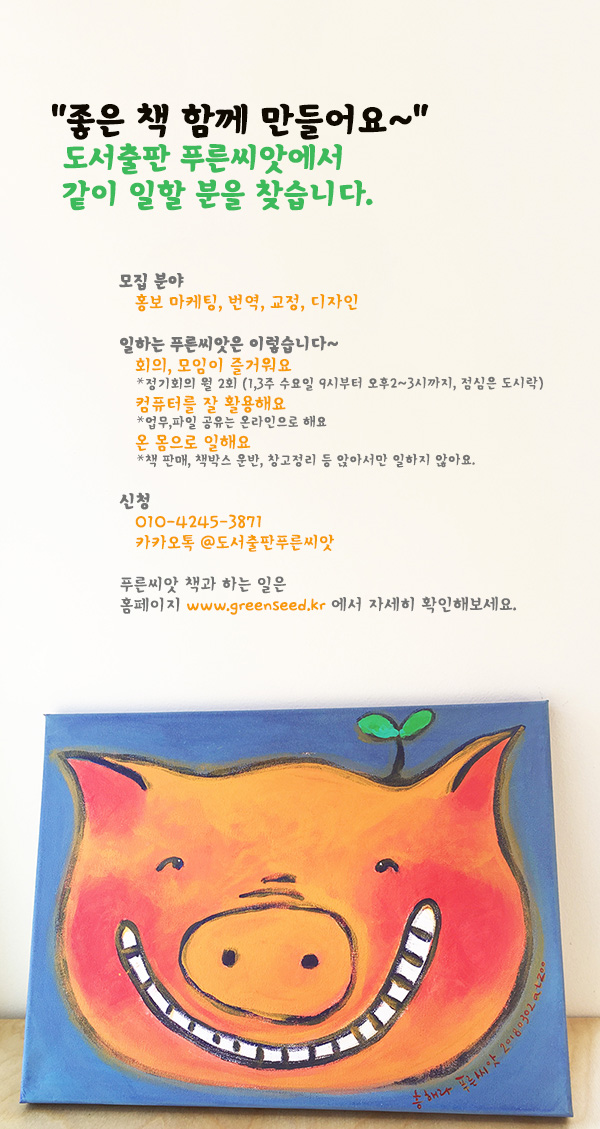 "좋은 책 함께 만들어요~"
도서출판 푸른씨앗에서
같이 일할 분을 찾습니다.
모집 분야
홍보 마케팅, 번역, 교정, 디자인
일하는 푸른씨앗은 이렇습니다~
회의, 모임이 즐거워요
*정기회의 월 2회 (1,3주 수요일 9시부터 오후2~3시까지, 점심은 도시락)
컴퓨터를 잘 활용해요
*업무,파일 공유는 온라인으로 해요
온 몸으로 일해요
*책 판매, 책박스 운반, 창고정리 등 앉아서만 일하지 않아요.
신청
010-4245-3871
카카오톡 @도서출판푸른씨앗
푸른씨앗 책과 하는 일은
홈페이지 www.greenseed.kr 에서 자세히 확인해보세요.
흥해라 푸른씨앗 20180302